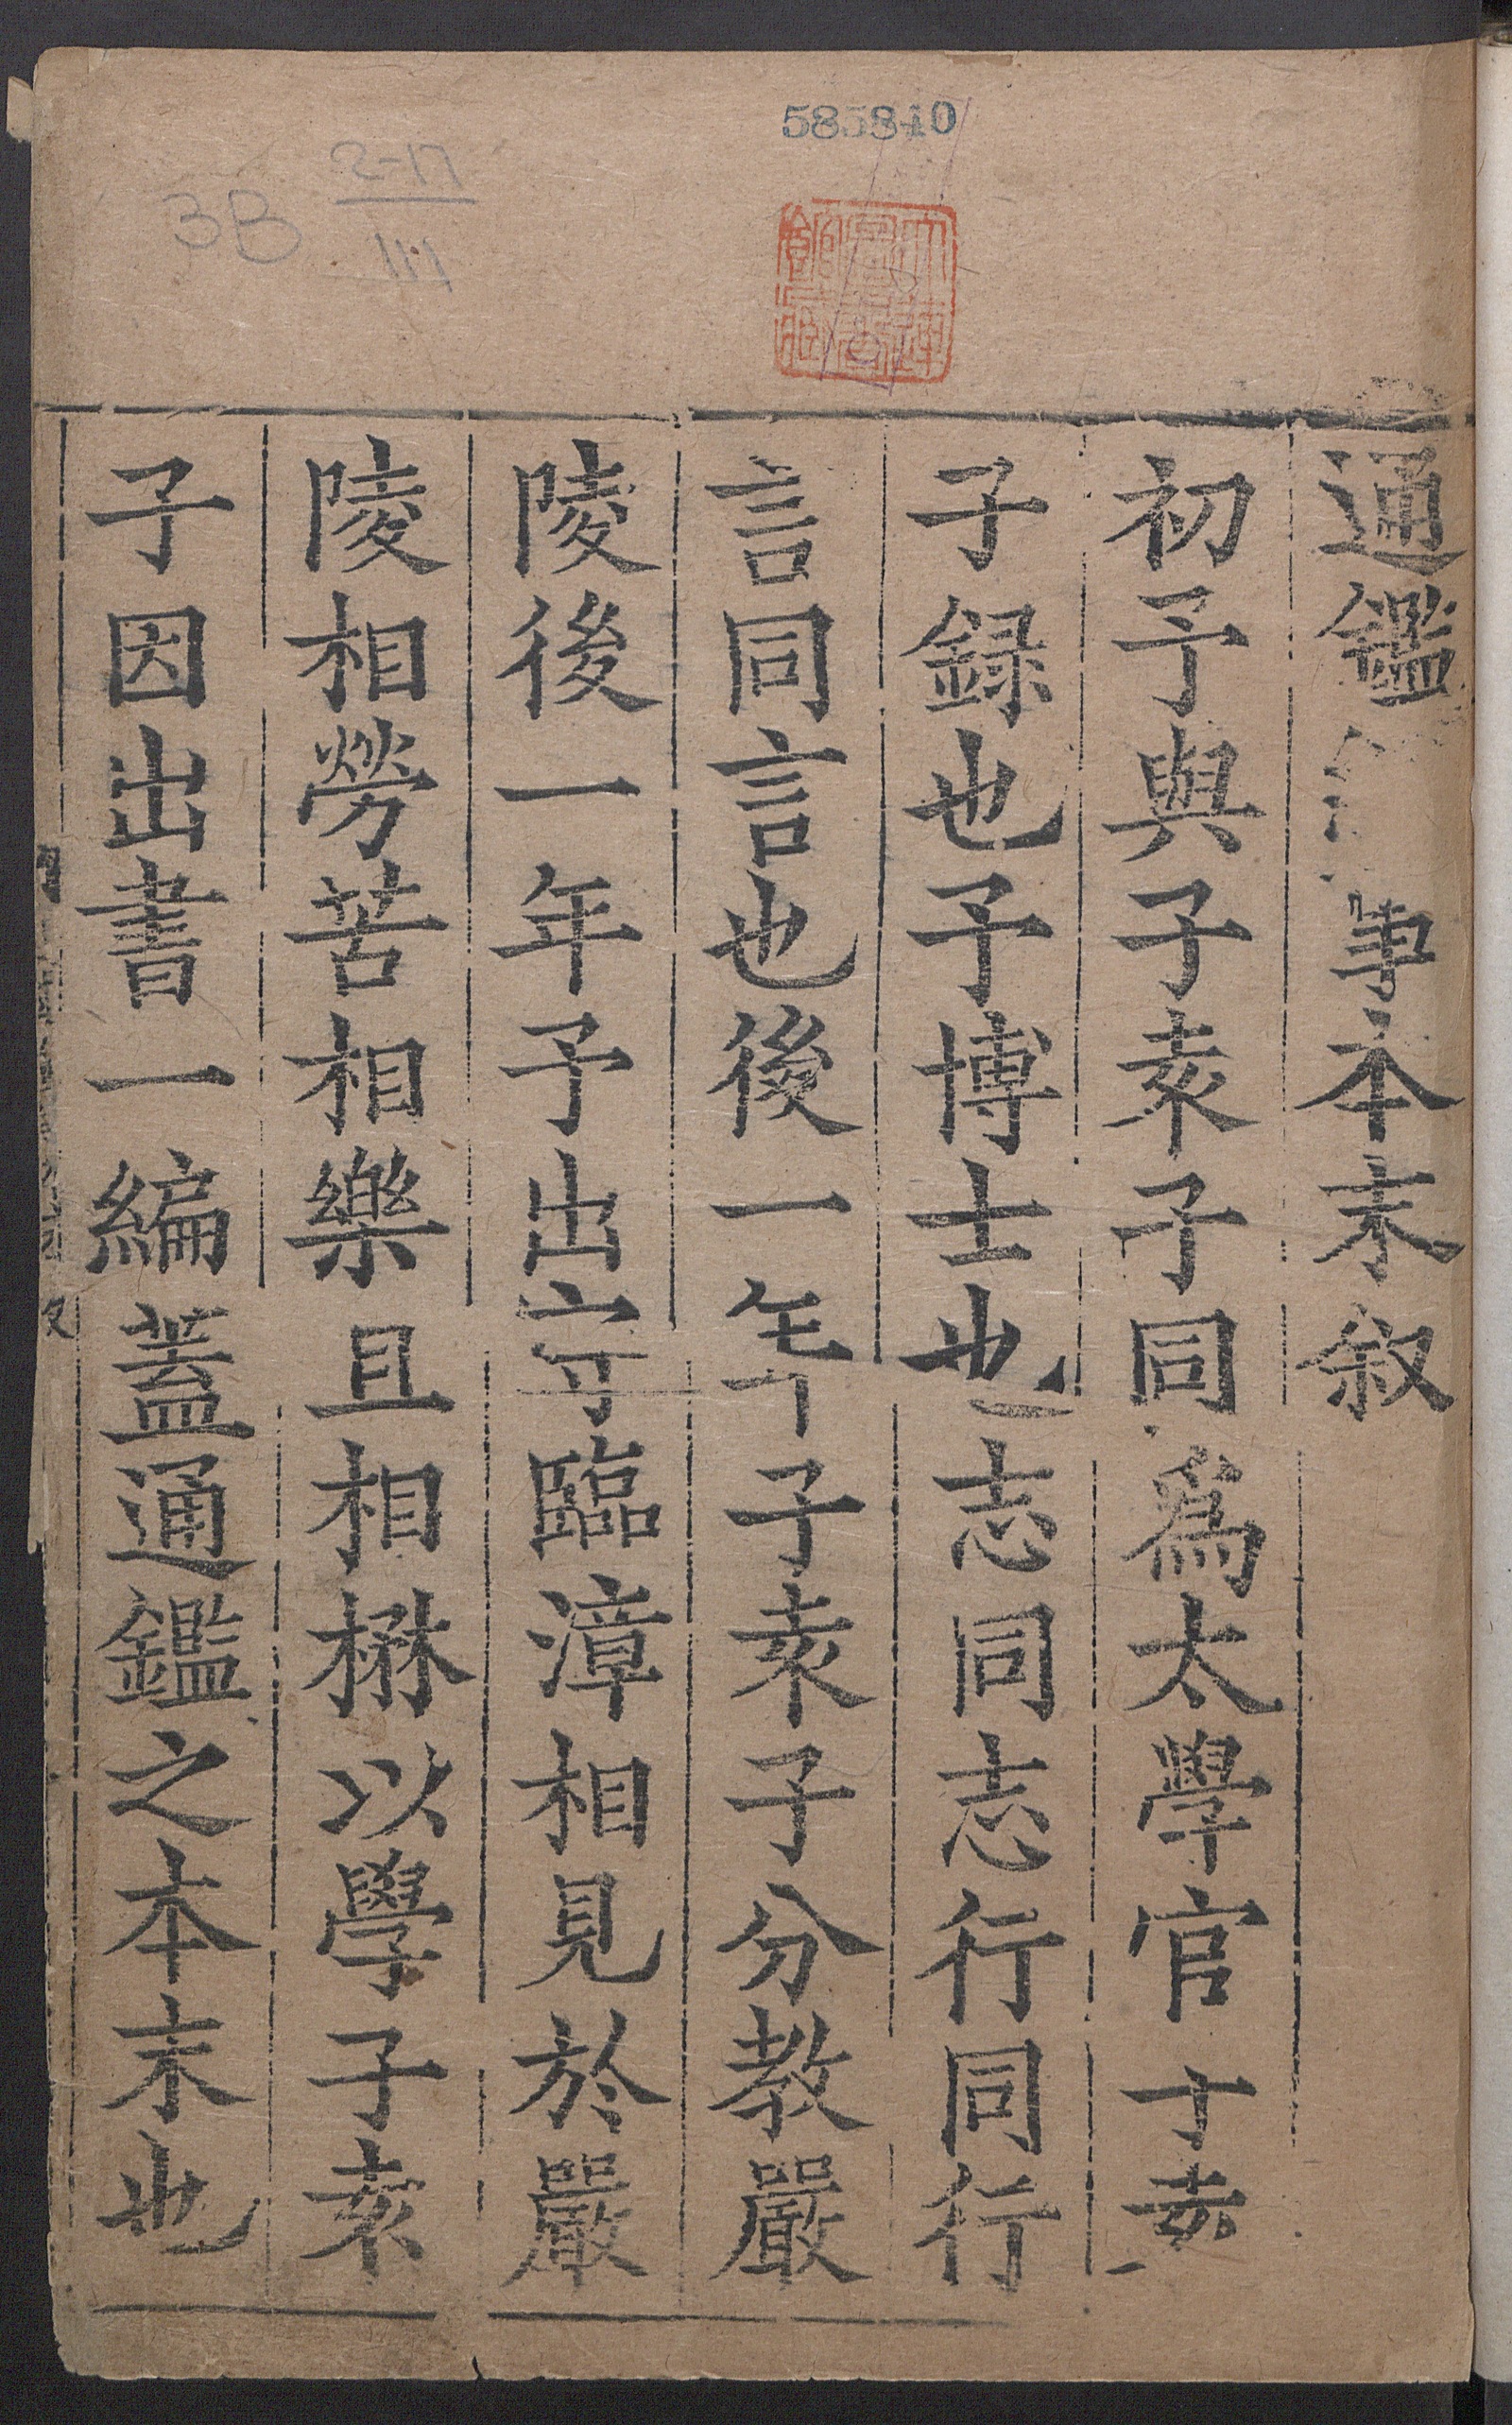 585840
3B
2-17
111
大連
圖書
館藏
通鑑事本末叙
初予與子袁子同爲太學官子袁
子録也予博士也志同志行同行
言同言也後一年子袁子分教嚴
陵後一年予出守臨漳相見於嚴
陵相勞苦相樂且相楙以學子袁
子因出書一編蓋通鑑之本末也